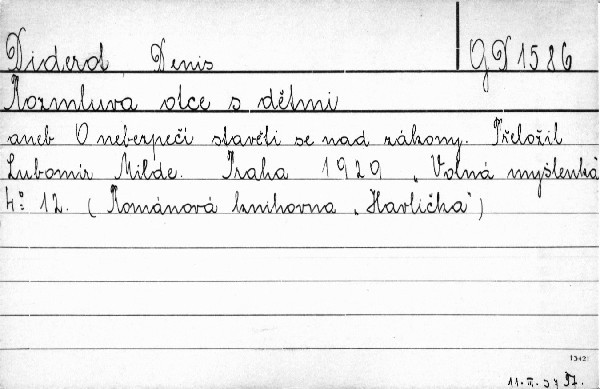 Diderot Denis GD 1586
Rozmluva otce s dětmi
aneb O nebezpečí stavěti se nad zákony. Přeložil
Lubomír Milde. Praha 1929 „Volná myšlenka"
4° 12. (Románová knihovna „Havlíčka")
13421
11. II. 37